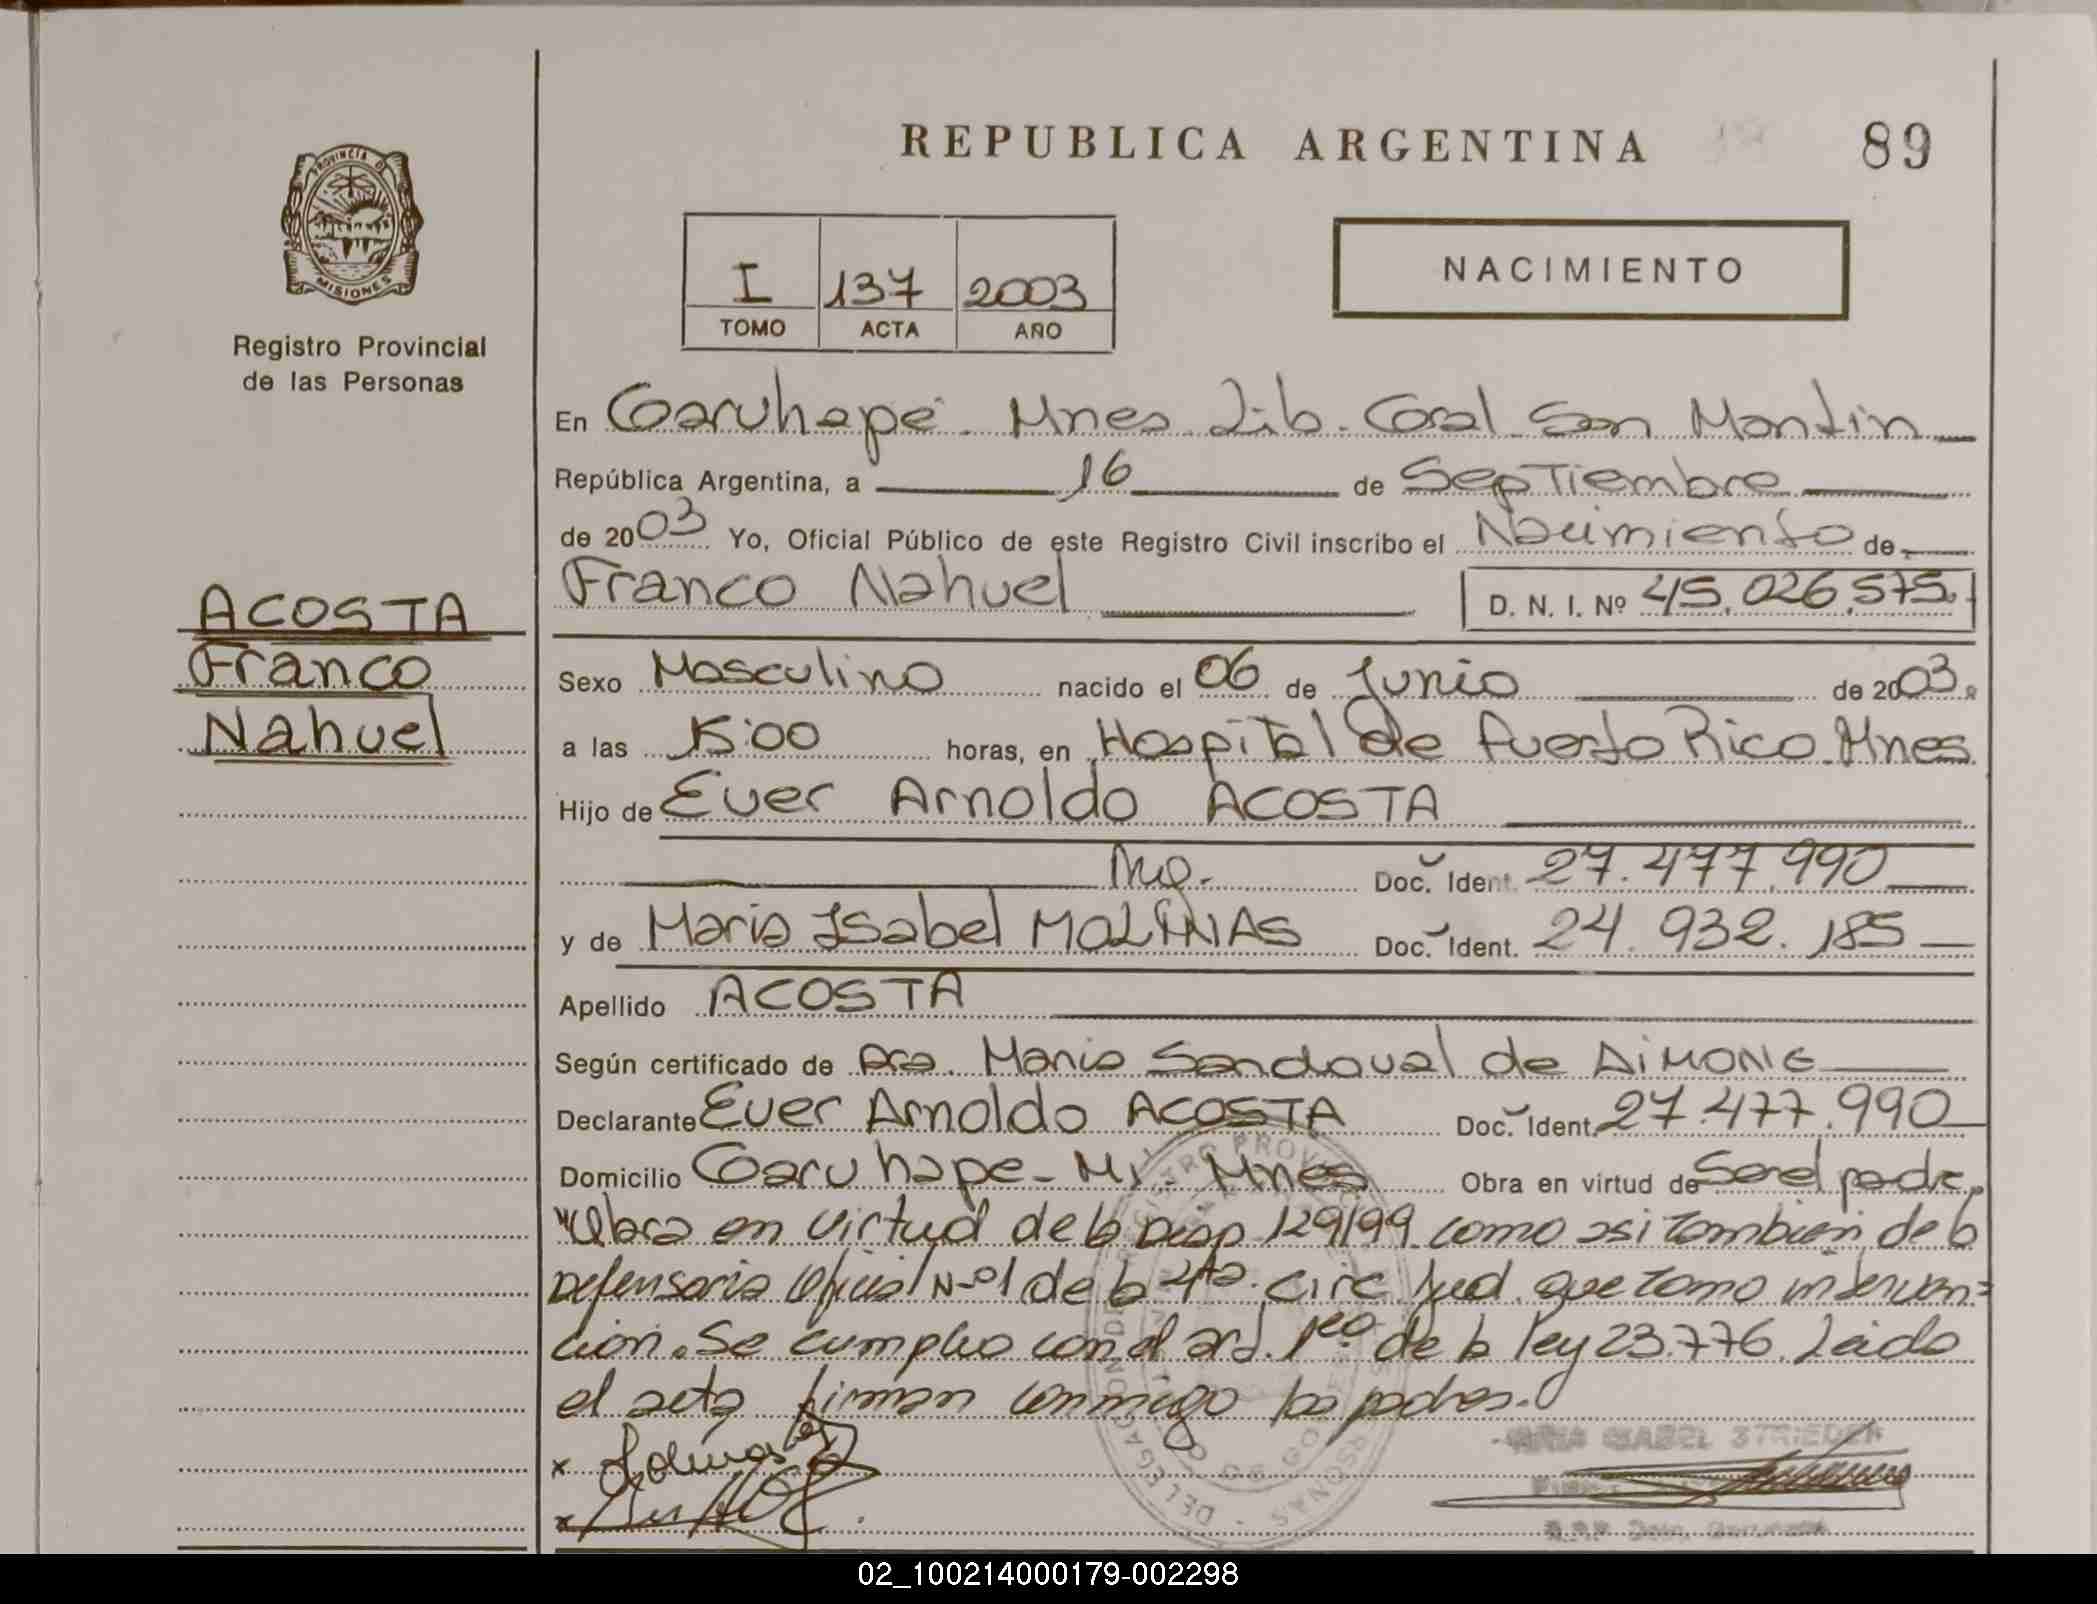 REPUBLICA ARGENTINA
89
PROVINCIA DE MISIONES
Registro Provincial
de las Personas
I 137 2003
TOMO ACTA AÑO
NACIMIENTO
En Caruhape Mnes Lib. Gral San Martin
República Argentina, a 16 de Septiembre
de 2003 Yo, Oficial Público de este Registro Civil inscribo el Nacimiento de
Franco Nahuel D. N. I. Nº 45.026.575
ACOSTA
Franco
Nahuel
Sexo Masculino nacido el 06 de Junio de 2003
a las 15:00 horas, en Hospital de Puerto Rico Mnes
Hijo de Ever Arnoldo ACOSTA
Doc. Ident. 27.477.990
y de Maria Isabel MOLINAS Doc. Ident. 24.932.185
Apellido ACOSTA
Según certificado de Dra. Maria Sandoval de DIMONE
Declarante Ever Arnoldo ACOSTA Doc. Ident. 27.477.990
Domicilio Caruhape - Mnes Obra en virtud de Ser el padre
"Obra en virtud de la Disp 129/99 como asi tambien de la
Defensoria Oficial Nº 1 de la 4ta. Circ. Jud. que tomo interven=
cion. Se cumplio con el art. 1ro de la ley 23.776. Leida
el acta firman conmigo los padres.
x
x
ISABEL STRIEDER
02_100214000179-002298